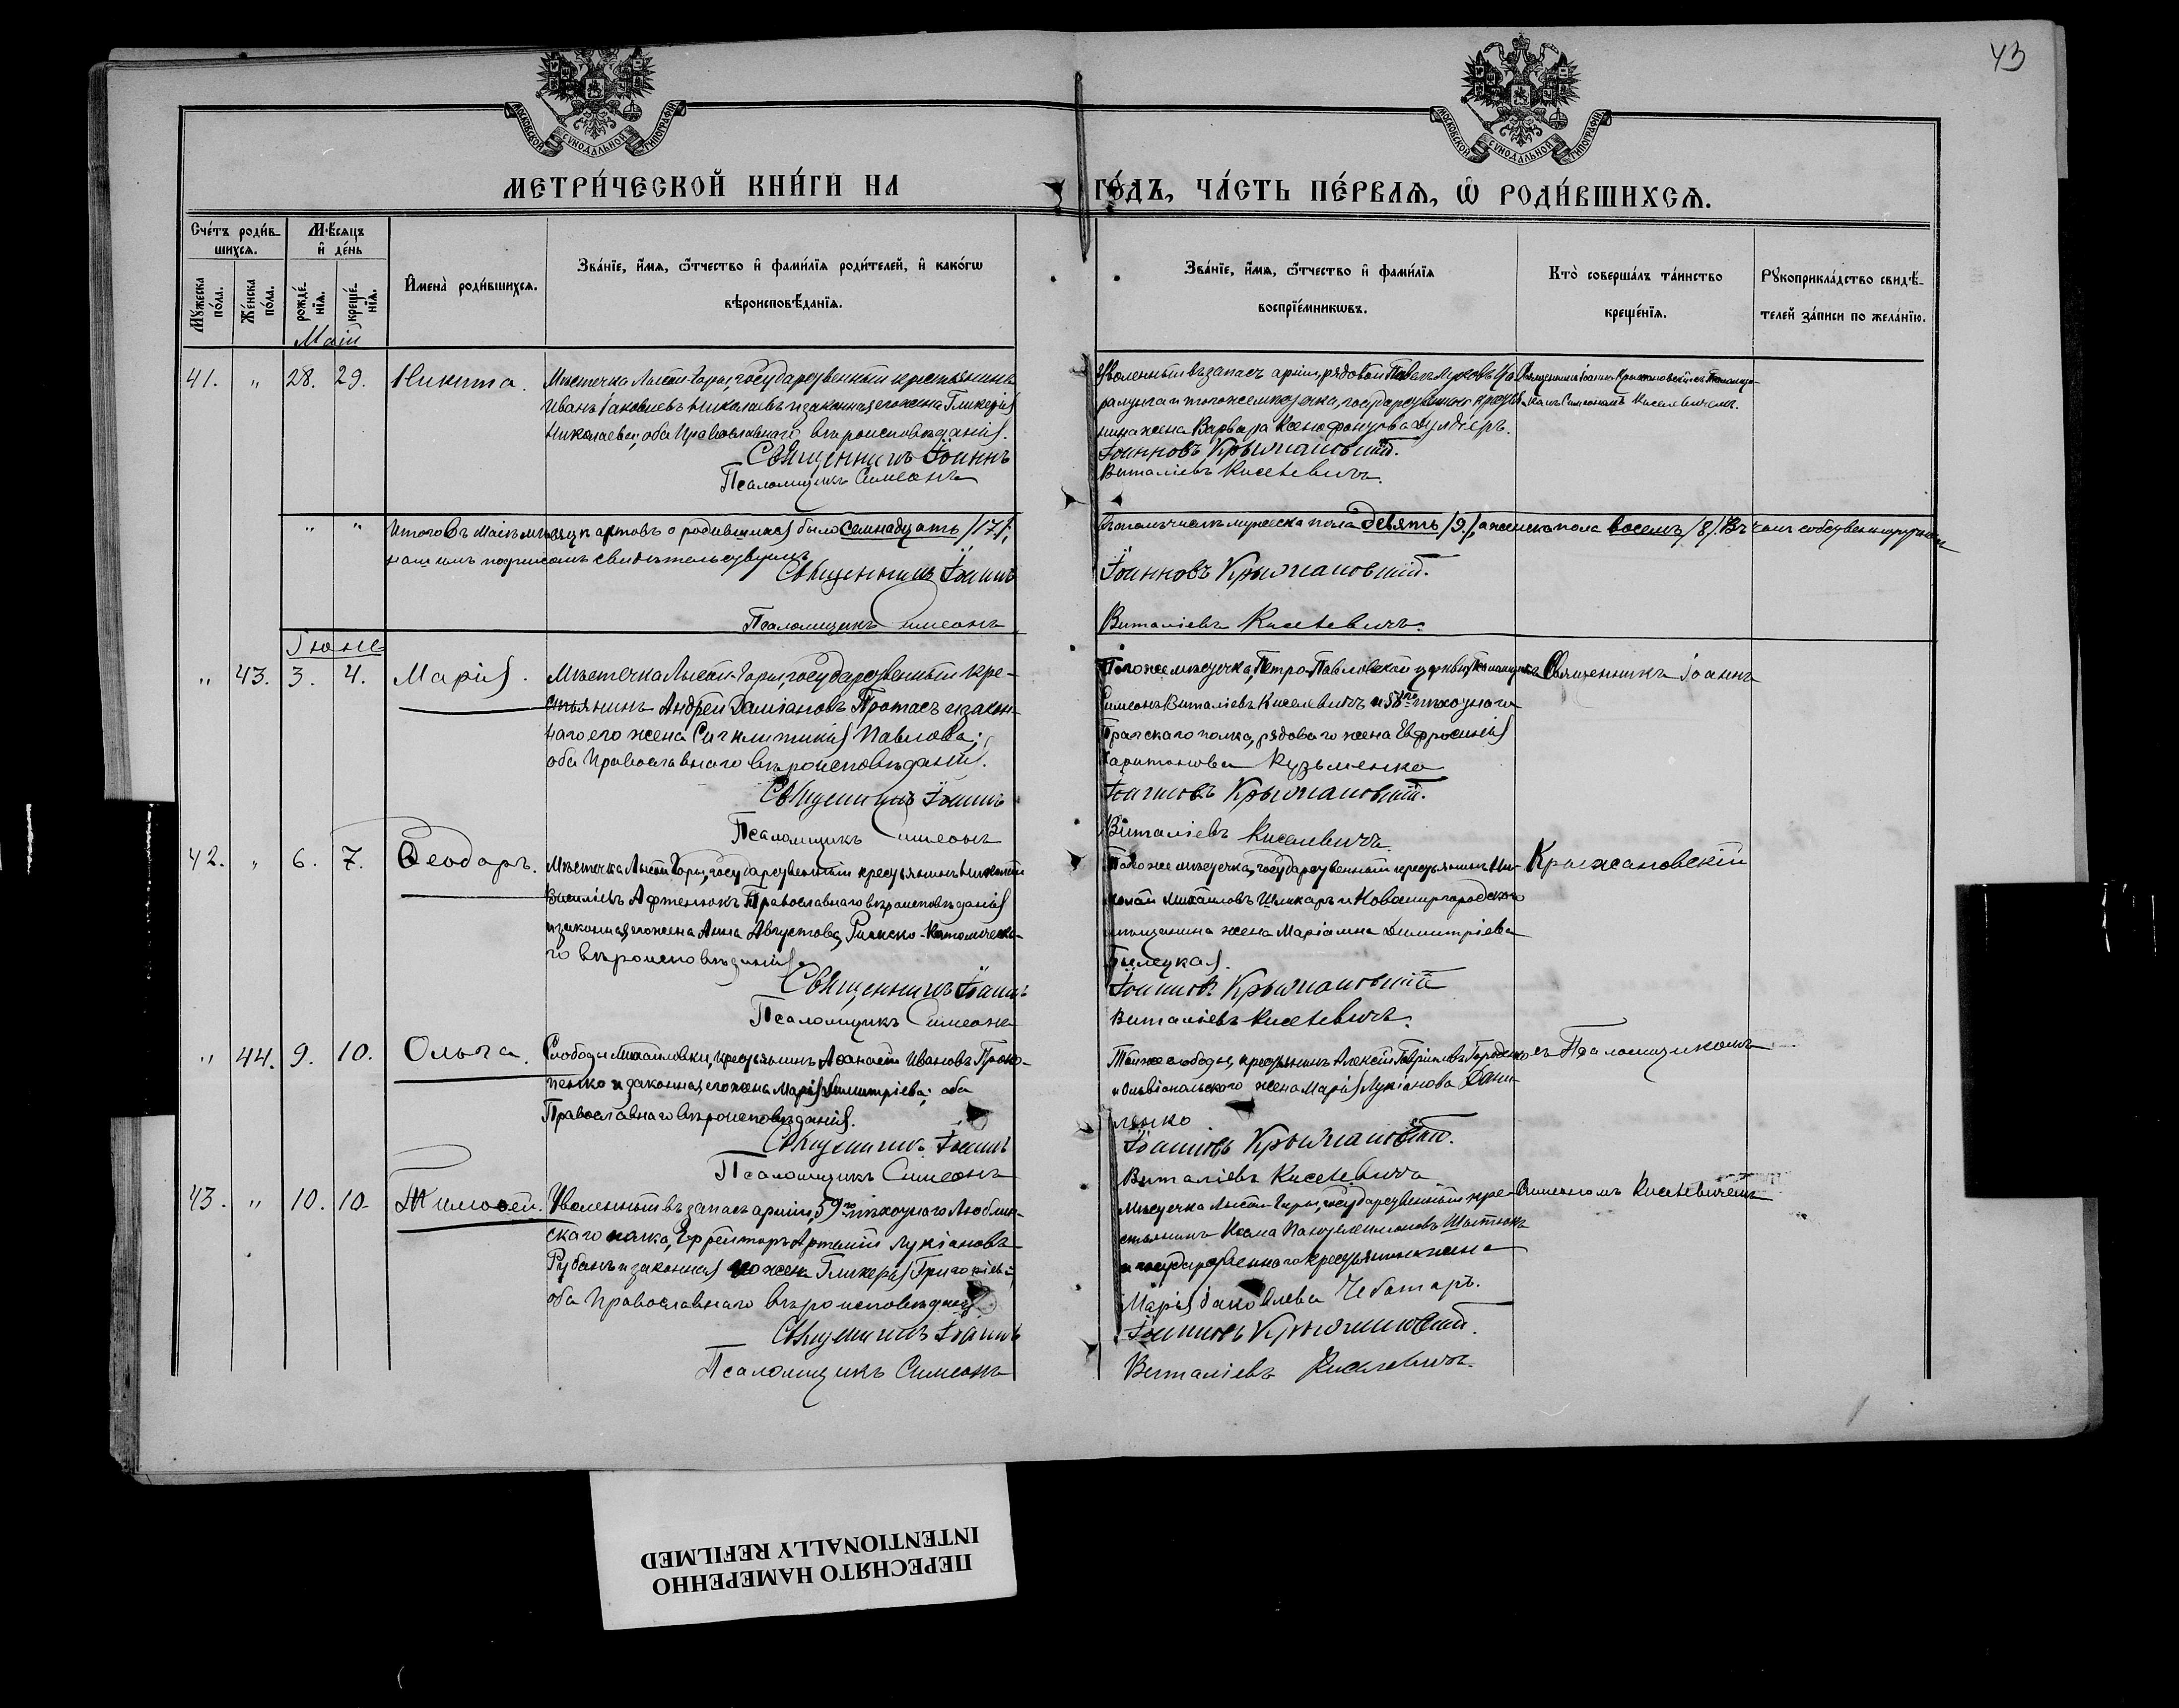 43
МОСКОВСКОЙ СѴНОДАЛЬНОЙ ТИПОГРАФІИ
МОСКОВСКОЙ СѴНОДАЛЬНОЙ ТИПОГРАФІИ
МЕТРИ́ЧЕСКОЙ КНИ́ГИ НА
ГО́ДЪ, ЧА́СТЬ ПЕ́РВАѦ, Ѡ РОДИ́ВШИХСѦ.
Сче́тъ роди́в-
шихсѧ.
Мꙋ́жеска по́ла.
Же́нска по́ла.
Мѣ́сѧцъ
и҆ де́нь
рожде́-нїѧ.
креще́-нїѧ.
И҆мена̀ роди́вшихсѧ.
Зва́нїе, и҆́мѧ, ѻ҆́тчество и҆ фами́лїѧ роди́телей, и҆ како́гѡ
вѣроисповѣ́данїѧ.
Зва́нїе, и҆́мѧ, ѻ҆́тчество и҆ фами́лїѧ
воспрїе́мникѡвъ.
Кто̀ соверша́лъ та́инство
креще́нїѧ.
Рꙋкоприкла́дство свидѣ́-
телей за́писи по жела́нїю.
Маій
41. " 28. 29. Никита.
Мѣстечка Лысой-Горы, государственный крестьянинъ
Иванъ Іаковлевъ Николаевъ и законная его жена Гликерія
Николаева; оба Православнаго вѣроисповѣданія.
Священникъ Іоаннъ
Псаломщикъ Симеонъ
Уволенный въ запасъ арміи, рядовой Павелъ
и того же мѣстечка, государственнаго кресть-
нина жена Варвара Ксенофонтова
Іоанновъ Крыжановскій.
Виталіевъ Киселевичъ.
Священникъ Іоаннъ Крыжановскій съ Псаломщи-
комъ Симеономъ Киселевичемъ.
" " Итого въ Маіѣ мѣсяцѣ актовъ о родившихся было семнадцать /17/;
нашимъ подписомъ свидѣтельствуемъ
Священникъ Іоаннъ
Псаломщикъ Симеонъ
въ томъ числѣ мужеска пола девять /9/, а женска пола восемь /8/. Въ чемъ собственноручнымъ
Іоанновъ Крыжановскій.
Виталіевъ Киселевичъ.
Іюнь
" 43. 3. 4. Марія.
Мѣстечка Лысой-Горы, государственный кре-
стьянинъ Андрей Даміановъ Протасъ и закон-
ная его жена Сигклитикія Павлова;
оба Православнаго вѣроисповѣданія.
Священникъ Іоаннъ
Псаломщикъ Симеонъ
Того же мѣстечка, Петро-Павловской церкви, Псаломщикъ
Симеонъ Виталіевъ Киселевичъ и 58го пѣхотнаго
Прагскаго полка, рядоваго жена Евфросинія
Харитонова Кузьменко
Іоанновъ Крыжановскій.
Виталіевъ Киселевичъ.
Священникъ Іоаннъ
42. " 6. 7. Ѳеодоръ.
Мѣстечка Лысой Горы, государственный крестьянинъ Николай
Василіевъ Афтенюкъ Православнаго вѣроисповѣданія
и законная его жена Анна Августова, Римско-Католическа-
го вѣроисповѣданія.
Священникъ Іоаннъ
Псаломщикъ Симеонъ
Того же мѣстечка, государственный крестьянинъ Ни-
колай Михайловъ Шликарь и Новомиргородскаго
мѣщанина жена Маріамна Димитріева
Былецкая.
Іоанновъ Крыжановскій
Виталіевъ Киселевичъ.
Крыжановскій
" 44. 9. 10. Ольга.
Слободы Михайловки, крестьянинъ Аѳанасій Ивановъ Проко-
пенко и законная его жена Марія Димитріева; оба
Православнаго вѣроисповѣданія.
Священникъ Іоаннъ
Псаломщикъ Симеонъ
Той же слободы, крестьянинъ Алексій Гавріиловъ
и Ольвіопольского жена Марія Лукіанова Дани-
ленко
Іоанновъ Крыжановскій.
Виталіевъ Киселевичъ
съ Псаломщикомъ
43. " 10. 10. Тимоѳей.
Уволенный въ запасъ арміи, 59го пѣхотнаго Люблин-
скаго полка, Ефрейторъ Артемій Лукіановъ
Рубанъ и законная его жена Гликерія Григоріева;
оба Православнаго вѣроисповѣданія.
Священникъ Іоаннъ
Псаломщикъ Симеонъ
Мѣстечка Лысой-Горы, государственный кре-
стьянинъ Косма Пантелеимоновъ
и государственнаго крестьянина жена
Марія Іаковлева Чеботарь.
Іоанновъ Крыжановскій.
Виталіевъ Киселевичъ.
Симеономъ Киселевичемъ
ПЕРЕСНЯТО НАМЕРЕННО
INTENTIONALLY REFILMED